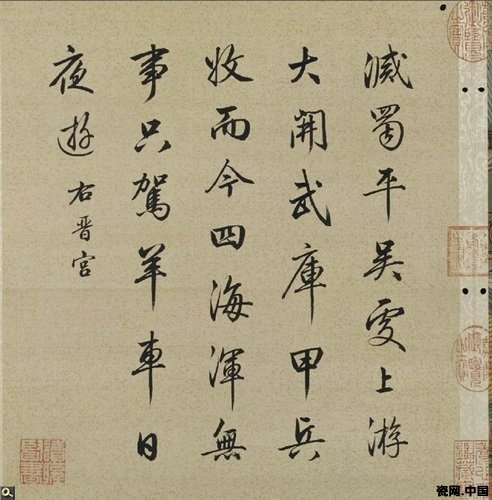 滅蜀平吳上游
大開武庫甲兵
收而今四海渾無
事只駕羊車日
夜遊 右晉宮
瓷网.中国